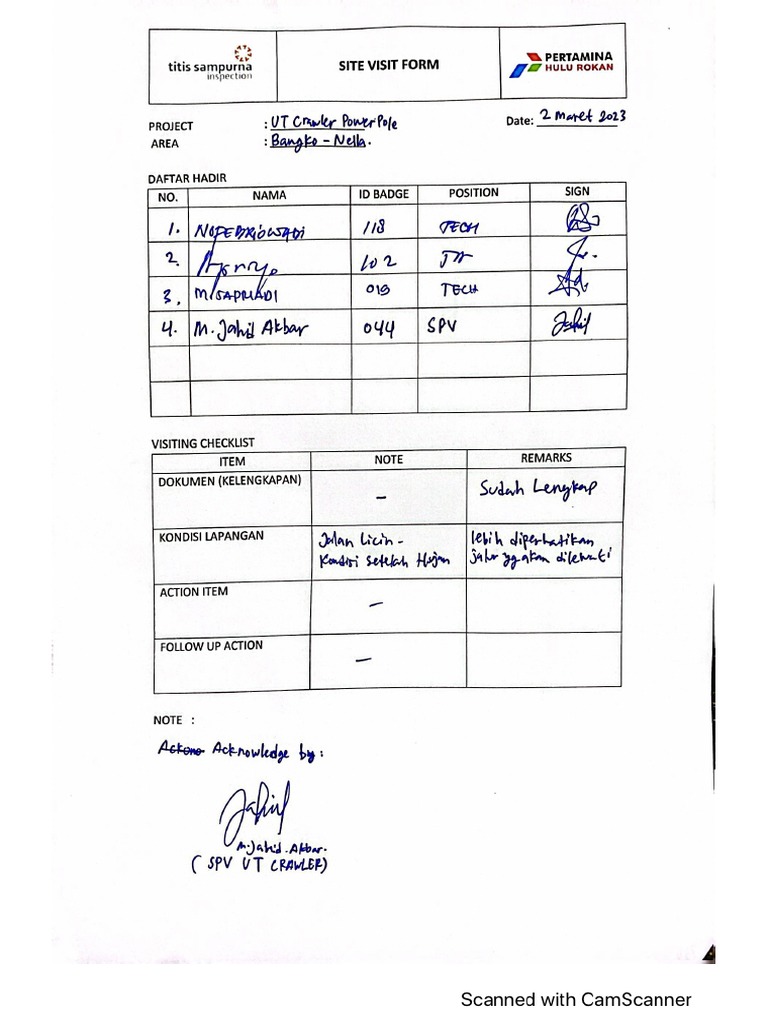 titis sampurna
inspection
SITE VISIT FORM
PERTAMINA
HULU ROKAN
PROJECT : UT Crawler Power Pole
Date: 2 Maret 2023
AREA : Bangko - Nella.
DAFTAR HADIR
NO. NAMA ID BADGE POSITION SIGN
1. 118 TECH
2. 102
3, M. SAPRIADI 019 TECH
4. M. Jahid Akbar 044 SPV
VISITING CHECKLIST
ITEM NOTE REMARKS
DOKUMEN (KELENGKAPAN) - Sudah Lengkap
KONDISI LAPANGAN Jalan Licin - lebih diperhatikan
Kondisi setelah Hujan jalur yg akan dilewati
ACTION ITEM -
FOLLOW UP ACTION -
NOTE :
Acknowledge by :
M. Jahid. Akbar.
( SPV UT CRAWLER)
Scanned with CamScanner